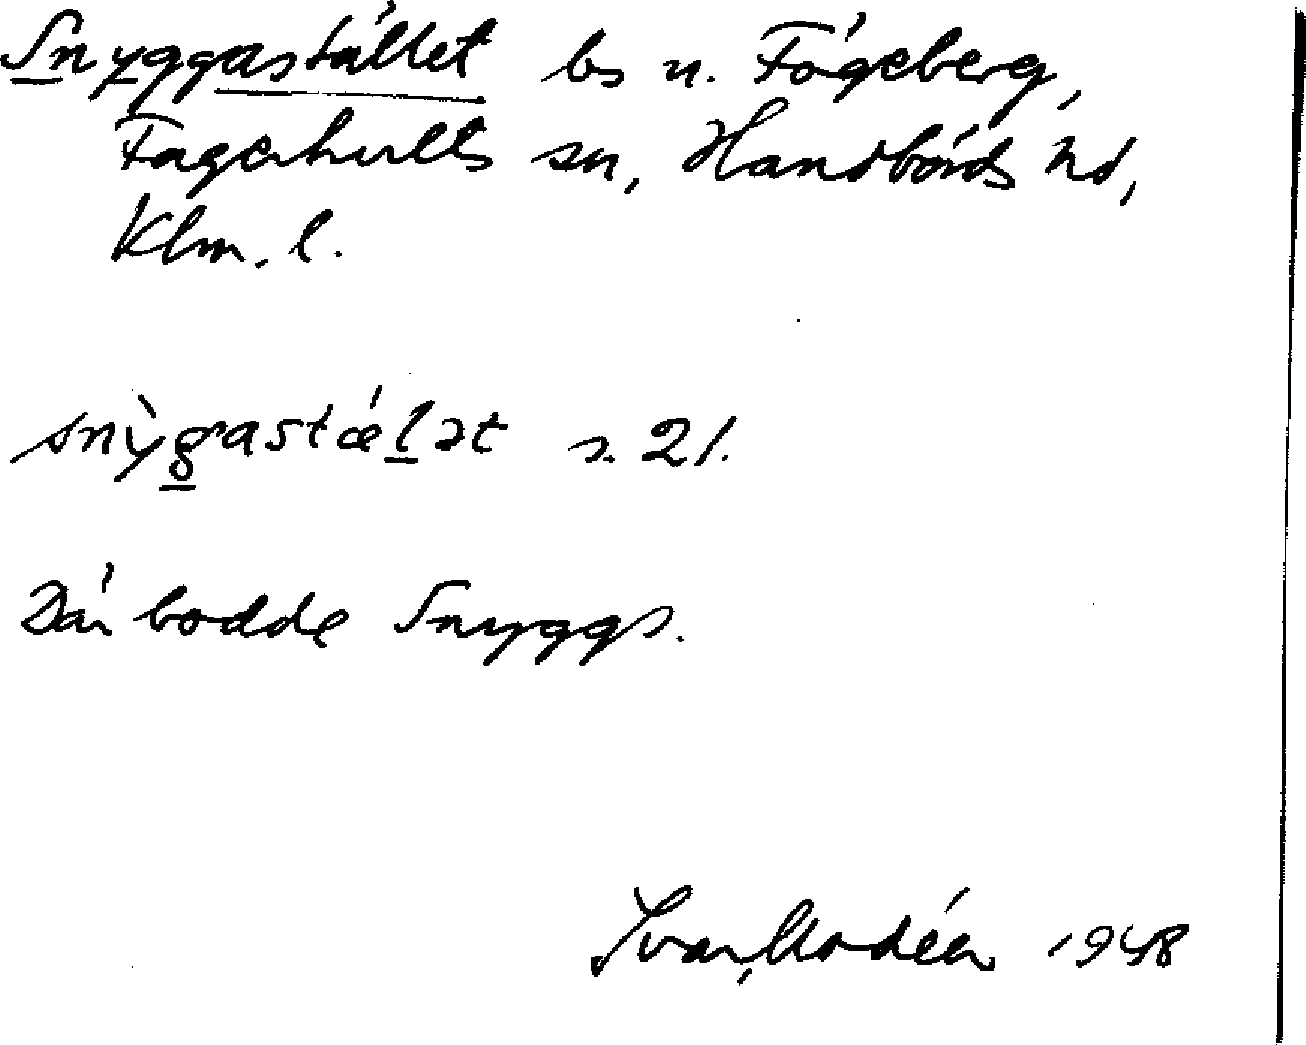 Snyggastället bs u. Fågeberg,
Fagerhults sn, Handbörds hd,
Klm. l.
snỳgastǽlət s. 21.
Där bodde Snyggs.
Ivar Modéer 1948